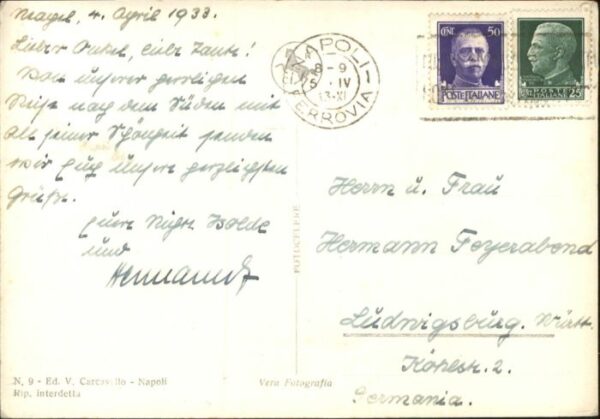 Neapel, 4. April 1933.
Lieber Onkel, liebe Tante!
Von unserer herrlichen
Reise nach dem Süden mit
all seiner Schönheit senden
wir Euch unsere herzlichsten
Grüße.
Eure Nichte Isolde
und
NAPOLI
8-9
5 IV
FERROVIA
CENT. 50
POSTE ITALIANE
POSTE ITALIANE
25
Herrn u. Frau
Hermann Feyerabend
Ludwigsburg. Württ.
2.
Germania.
FOTOCELERE
N. 9 - Ed. V. Carcavallo - Napoli
Rip. interdetta
Vera Fotografia